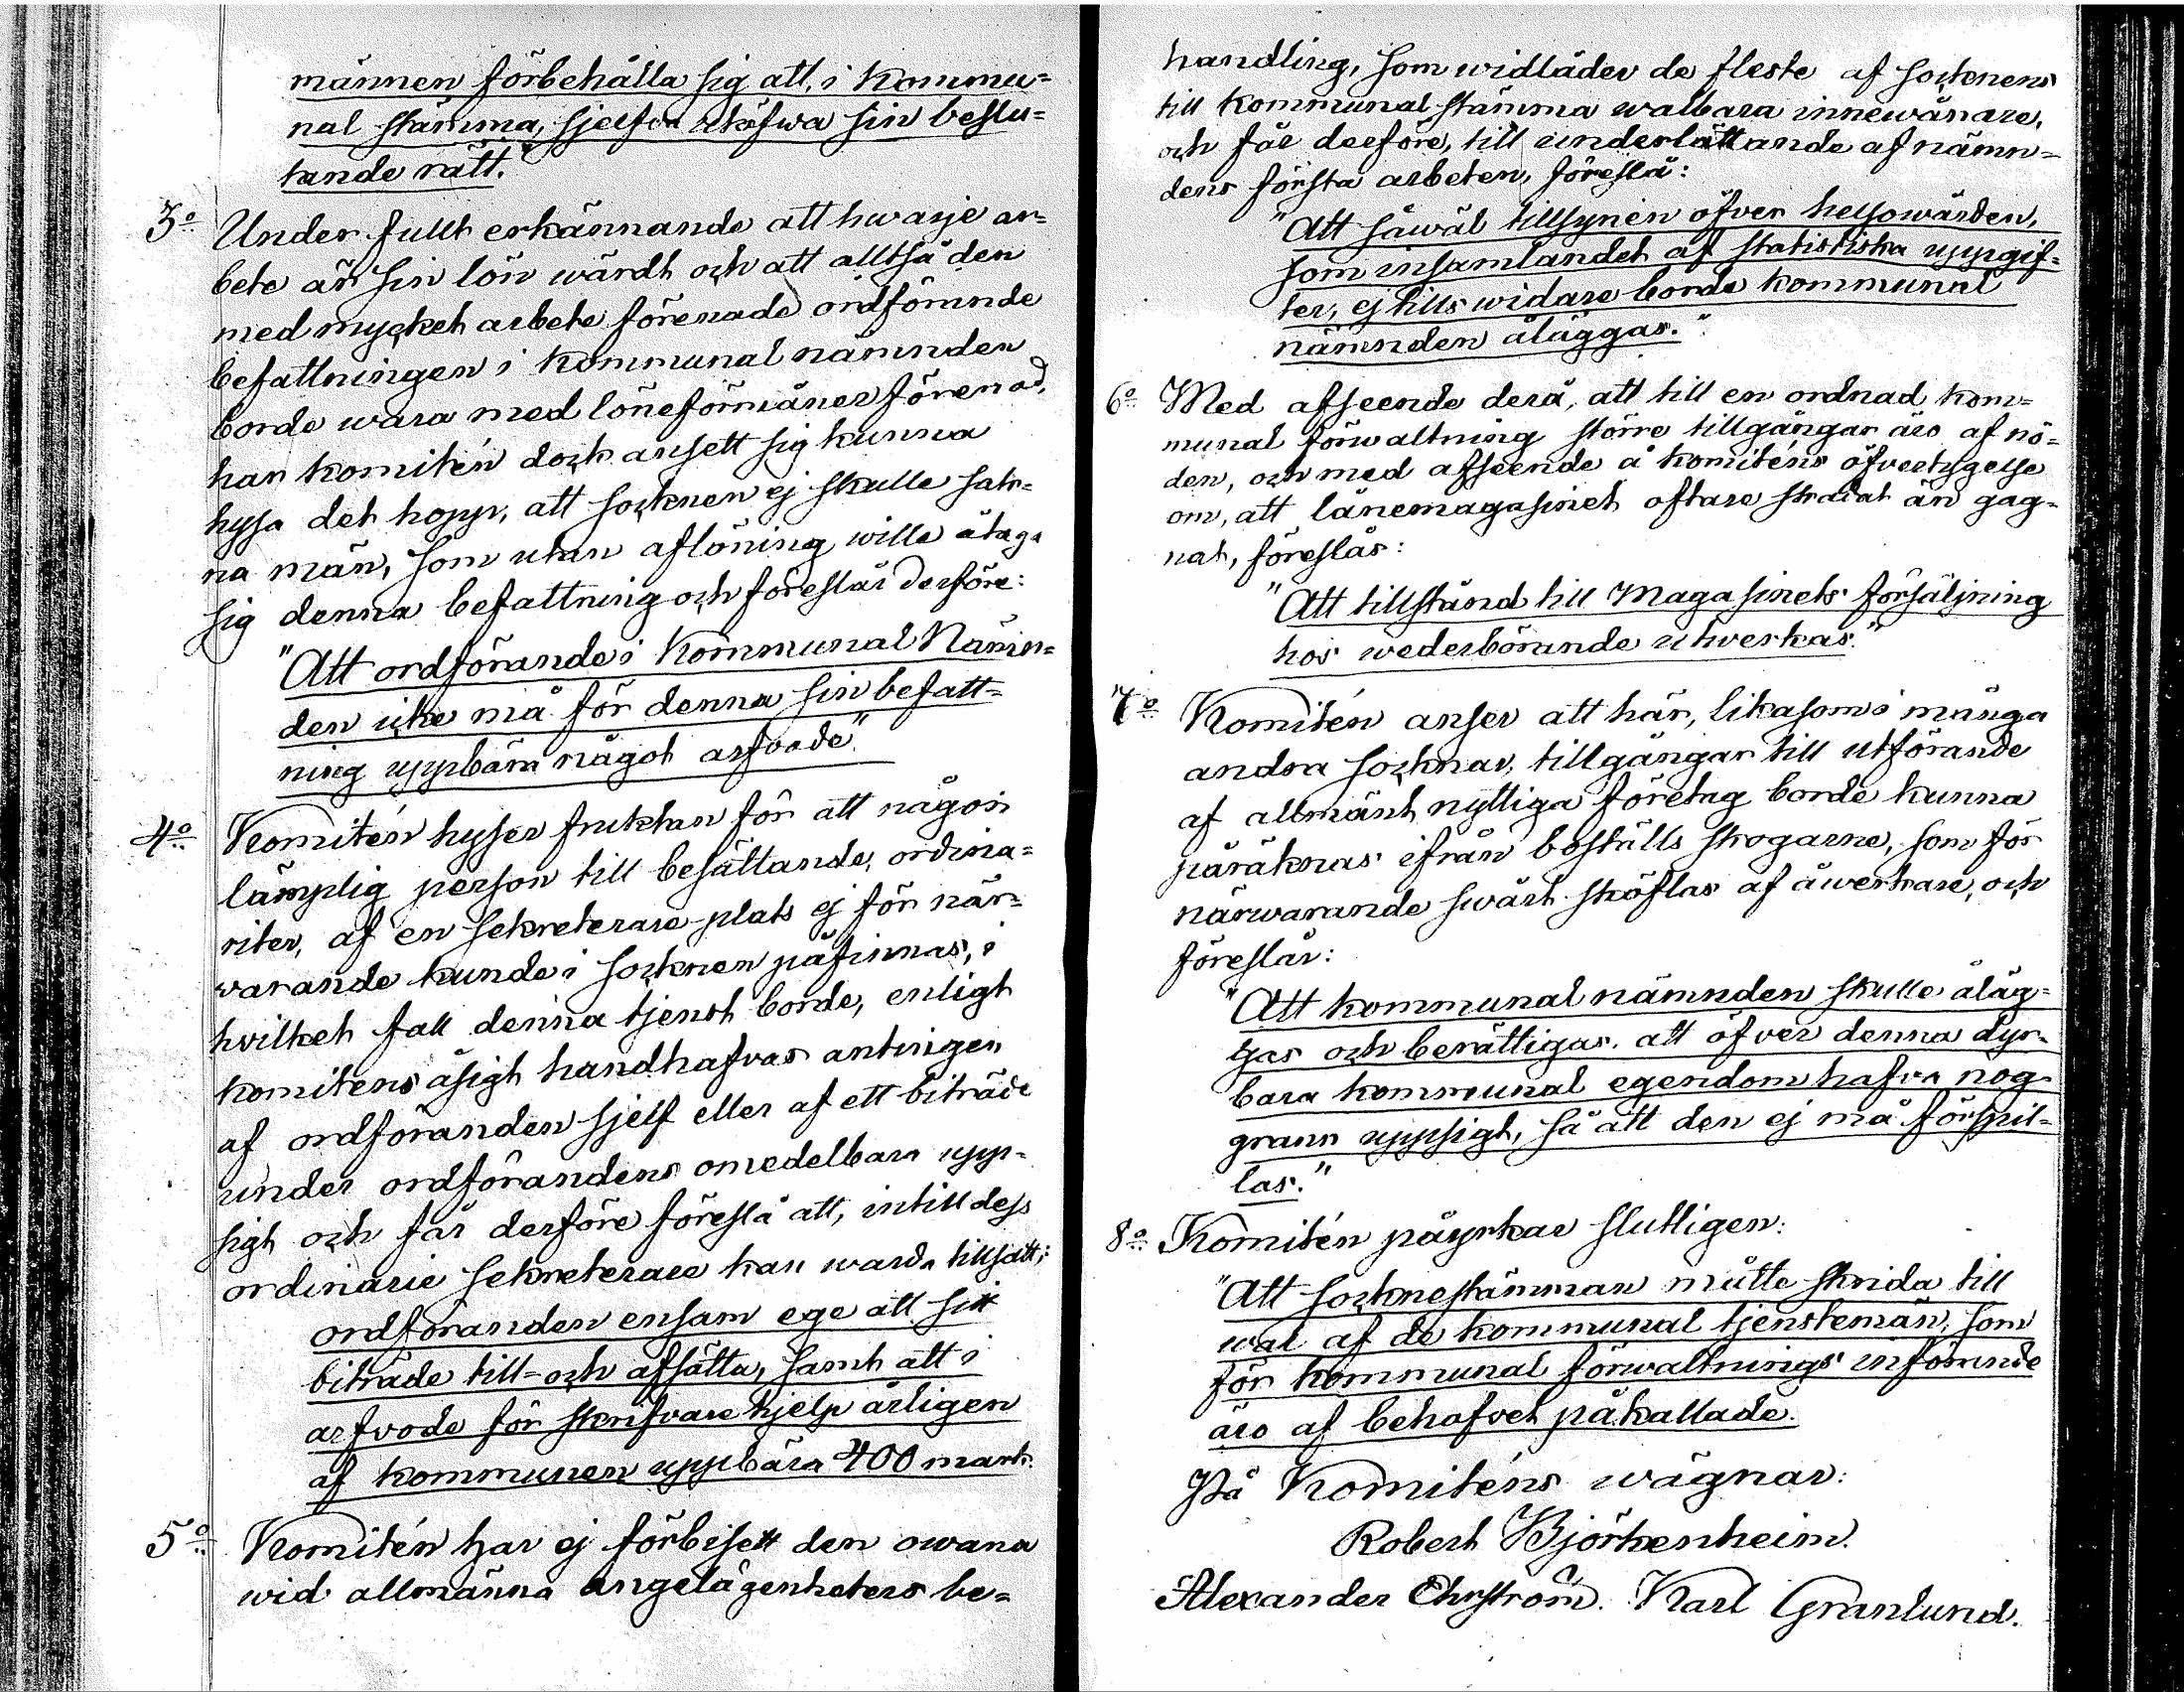 männen förbehålla sig att, i Kommu=
nal stämma, sjelfva utöfwa sin beslu=
tande rätt."
3o Under fullt erkännande att hwarje ar=
bete är sin lön wärdt och att alltså den
med mycket arbete förenade ordförande
befattningen i Kommunal nämnden
borde wara med löneförmåner förenad,
har komitén dock ansett sig kunna
hysa det hopp, att socknen ej skulle sak=
na män, som utan aflöning wille åtaga
sig denna befattning och föreslår derföre:
"Att ordförande i Kommunal Nämn=
den icke må för denna sin befatt=
ning uppbära något arfvode"
4o Komitén hyser fruktan för att någon
lämplig person till besättande, ordina=
riter, af en sekreterare-plats ej för när=
varande kunde i socknen påfinnas, i
hvilket fall denna tjenst borde, enligt
komitens åsigt handhafvas antingen
af ordföranden sjelf eller af ett biträde
under ordförandens omedelbara upp=
sigt och får derföre föreslå att, intill dess
ordinarie sekreterare kan warda tillsatt;
ordföranden ensam ege att sitt
biträde till= och afsätta, samt att i
arfvode för skrifvare hjelp årligen
af kommunen uppbära 400 mark.
5o Komitén har ej förbisett den owana
wid allmänna angelägenheters be=
handling, som widlåder de fleste af socknens
till Kommunal-stämma walbara innewånare,
och får derföre, till underlättande af nämn=
dens första arbeten, föreslå:
"Att såwäl tillsynen öfver helsowården,
som insamlandet af statistiska uppgif=
ter, ej tills widare borde kommunal
nämnden åläggas."
6o Med afseende derå, att till en ordnad kom=
munal förwaltning större tillgångar äro af nö=
den, och med afseende å komiténs öfvertygelse
om, att lånemagasinet oftare skadat än gag=
nat, föreslås:
"Att tillstånd till Magasinets försäljning
hos wederbörande utverkas."
7o Komitén anser att här, likasom i många
andra socknar, tillgångar till utförande
af allmänt nyttiga företag borde kunna
påräknas ifrån boställs skogarne, som för
närwarande swårt sköflas af åwerkare, och
föreslår:
"Att kommunal nämnden skulle åläg=
gas och berättigas att öfver denna dyr=
bara kommunal egendom hafva nog=
grann uppsigt, så att den ej må förspil=
las."
8o Komitén påyrkar slutligen:
"Att socknestämman måtte skrida till
wal af de kommunal tjenstemän, som
för kommunal förwaltnings införande
äro af behofvet påkallade.
På Komiténs wägnar:
Robert Björkenheim.
Alexander Ehrström. Karl Granlund.